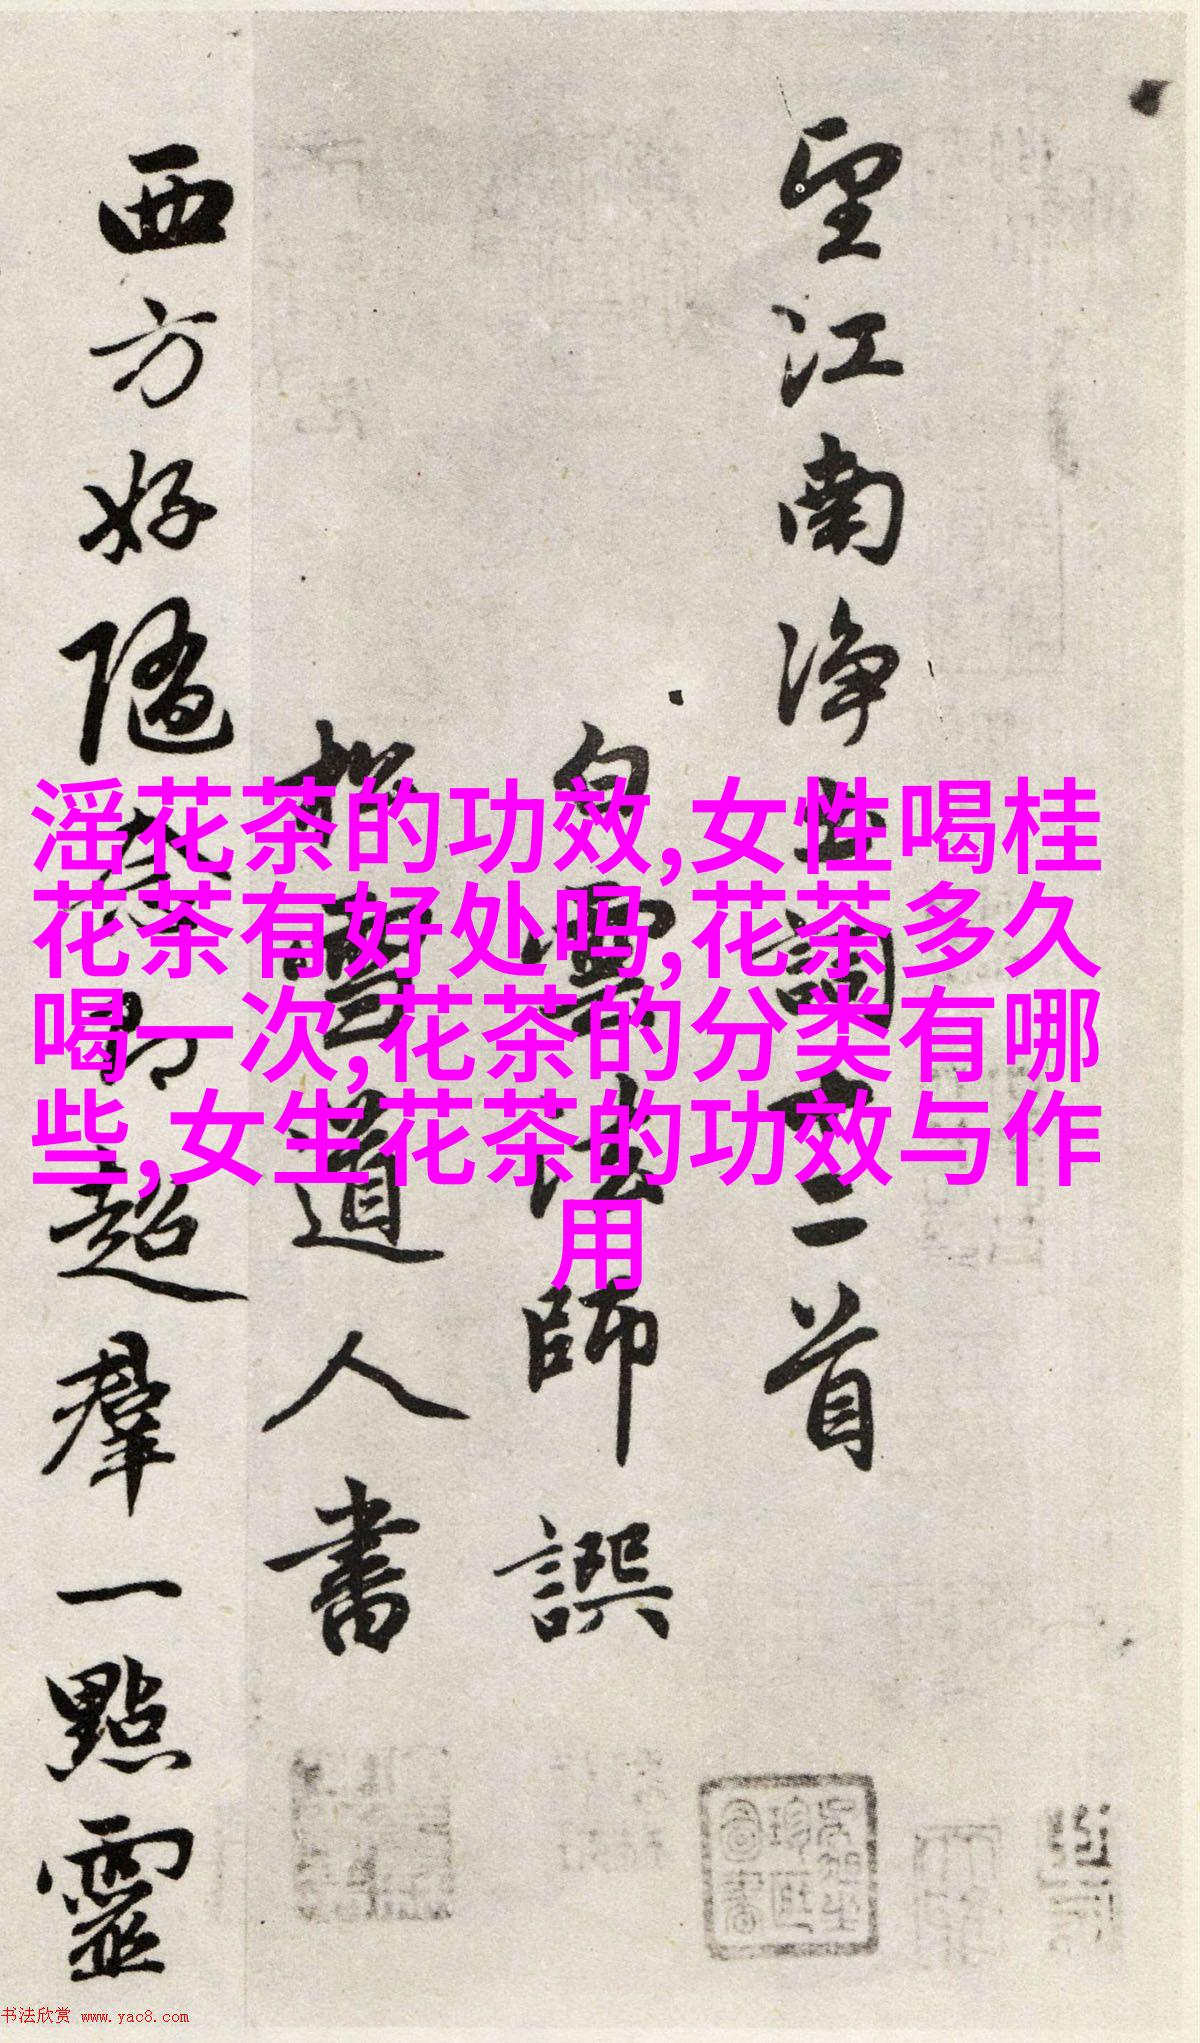 望江南净土词十二首
白雲法師譔
松雪道人書
西方好隨念即超羣一點靈
淫花茶的功效,女性喝桂
花茶有好处吗,花茶多久
喝一次,花茶的分类有哪
些,女生花茶的功效与作
用
书法欣赏 www.yac8.com